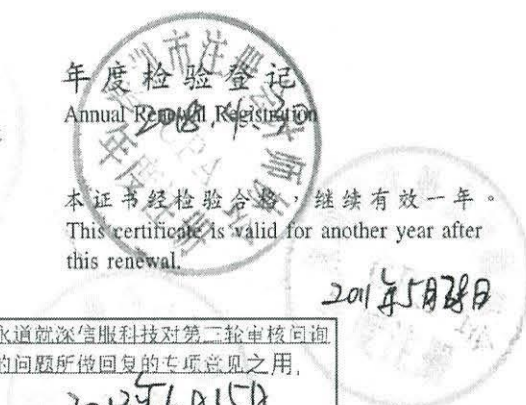 年度检验登记
Annual Renewal Registration
2018.4.30
本证书经检验合格，继续有效一年。
This certificate is valid for another year after
this renewal.
2011年5月
永道就深信服科技对第二轮审核问询
的问题所做回复的专项意见之用，